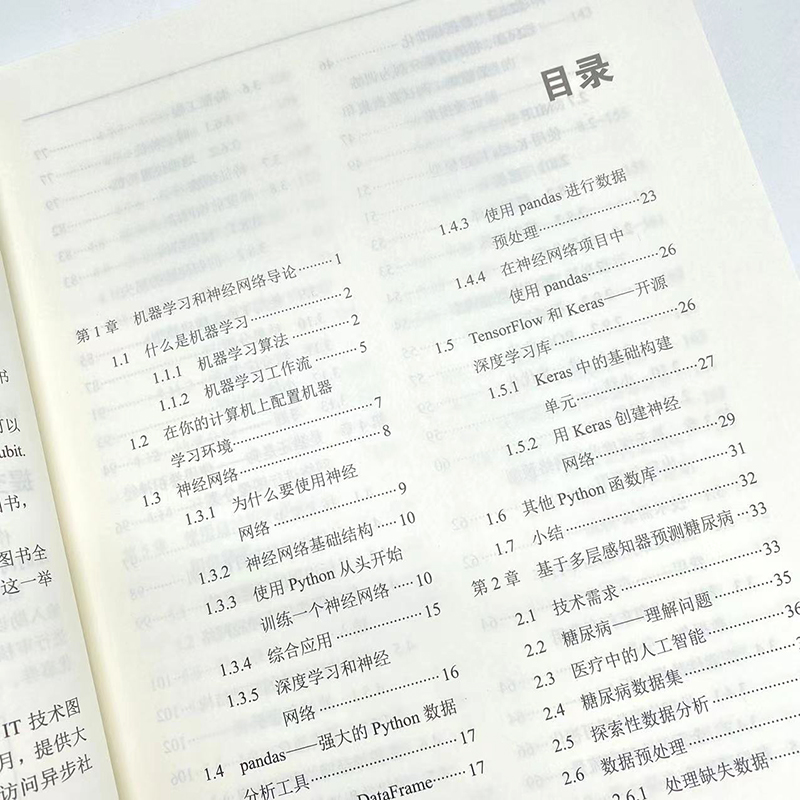 目录
第1章 机器学习和神经网络导论……1
1.1 什么是机器学习……2
1.1.1 机器学习算法……2
1.1.2 机器学习工作流……5
1.2 在你的计算机上配置机器
学习环境……7
1.3 神经网络……8
1.3.1 为什么要使用神经
网络……9
1.3.2 神经网络基础结构……10
1.3.3 使用 Python 从头开始
训练一个神经网络……10
1.3.4 综合应用……15
1.3.5 深度学习和神经
网络……16
1.4 pandas——强大的 Python 数据
分析工具……17
DataFrame……17
1.4.3 使用 pandas 进行数据
预处理……23
1.4.4 在神经网络项目中
使用 pandas……26
1.5 TensorFlow 和 Keras——开源
深度学习库……26
1.5.1 Keras 中的基础构建
单元……27
1.5.2 用 Keras 创建神经
网络……29
1.6 其他 Python 函数库……31
1.7 小结……32
第2章 基于多层感知器预测糖尿病……33
2.1 技术需求……33
2.2 糖尿病——理解问题……35
2.3 医疗中的人工智能……36
2.4 糖尿病数据集
2.5 探索性数据分析
2.6 数据预处理
2.6.1 处理缺失数据
书
可以
ubit.
书,
图书全
这一举
IT 技术图
月,提供大
访问异步社